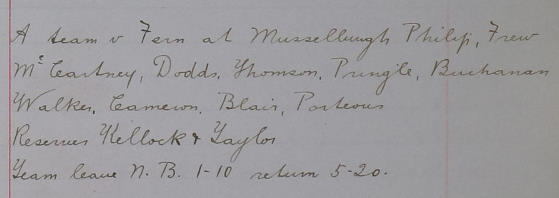 A team v Fern at Mussellburgh Philip, Frew
McCartney, Dodds, Thomson, Pringle, Buchanan
Walker, Cameron, Blair, Porteous
Reserves Kellock & Taylor
Team leave N.B. 1-10 return 5-20.